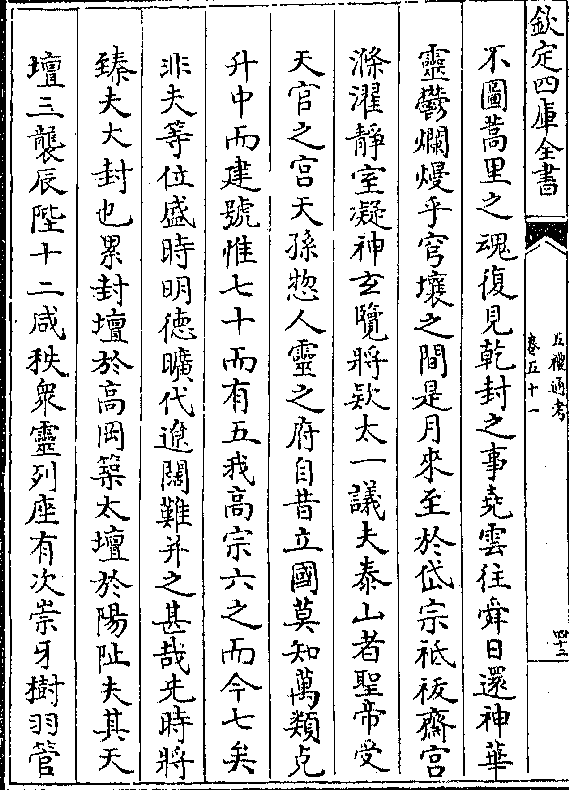 欽定四庫全書
五禮通考
卷五十一
四十三
不圖蒿里之魂復見乾封之事堯雲往舜日還神華
靈鬱爛熳乎穹壤之間是月來至於岱宗祗祓齋宮
滌濯靜室凝神玄覽將款太一議夫泰山者聖帝受
天官之宮天孫惣人靈之府自昔立國莫知萬類克
升中而建號惟七十而有五我高宗六之而今七矣
非夫等位盛時明德曠代遼闊難并之甚哉先時將
臻夫大封也累封壇於高岡築太壇於陽阯夫其天
壇三襲辰陛十二咸秩衆靈列座有次崇牙樹羽管